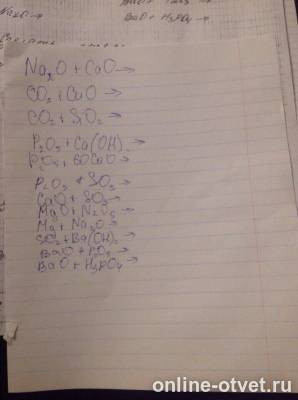 Na₂O →
BaO + H₃PO₄ →
Na₂O + CaO →
CO₂ + CuO →
CO₂ + SiO₂ →
P₂O₅ + Ca(OH)₂ →
P₂O₅ +
P₂O₅ + SO₃ →
CaO + SO₃ →
MgO + N₂O₅ →
Mg + Na₂O →
SO₂ + Ba(OH)₂ →
BaO + P₂O₅ →
BaO + H₃PO₄ →
online-otvet.ru